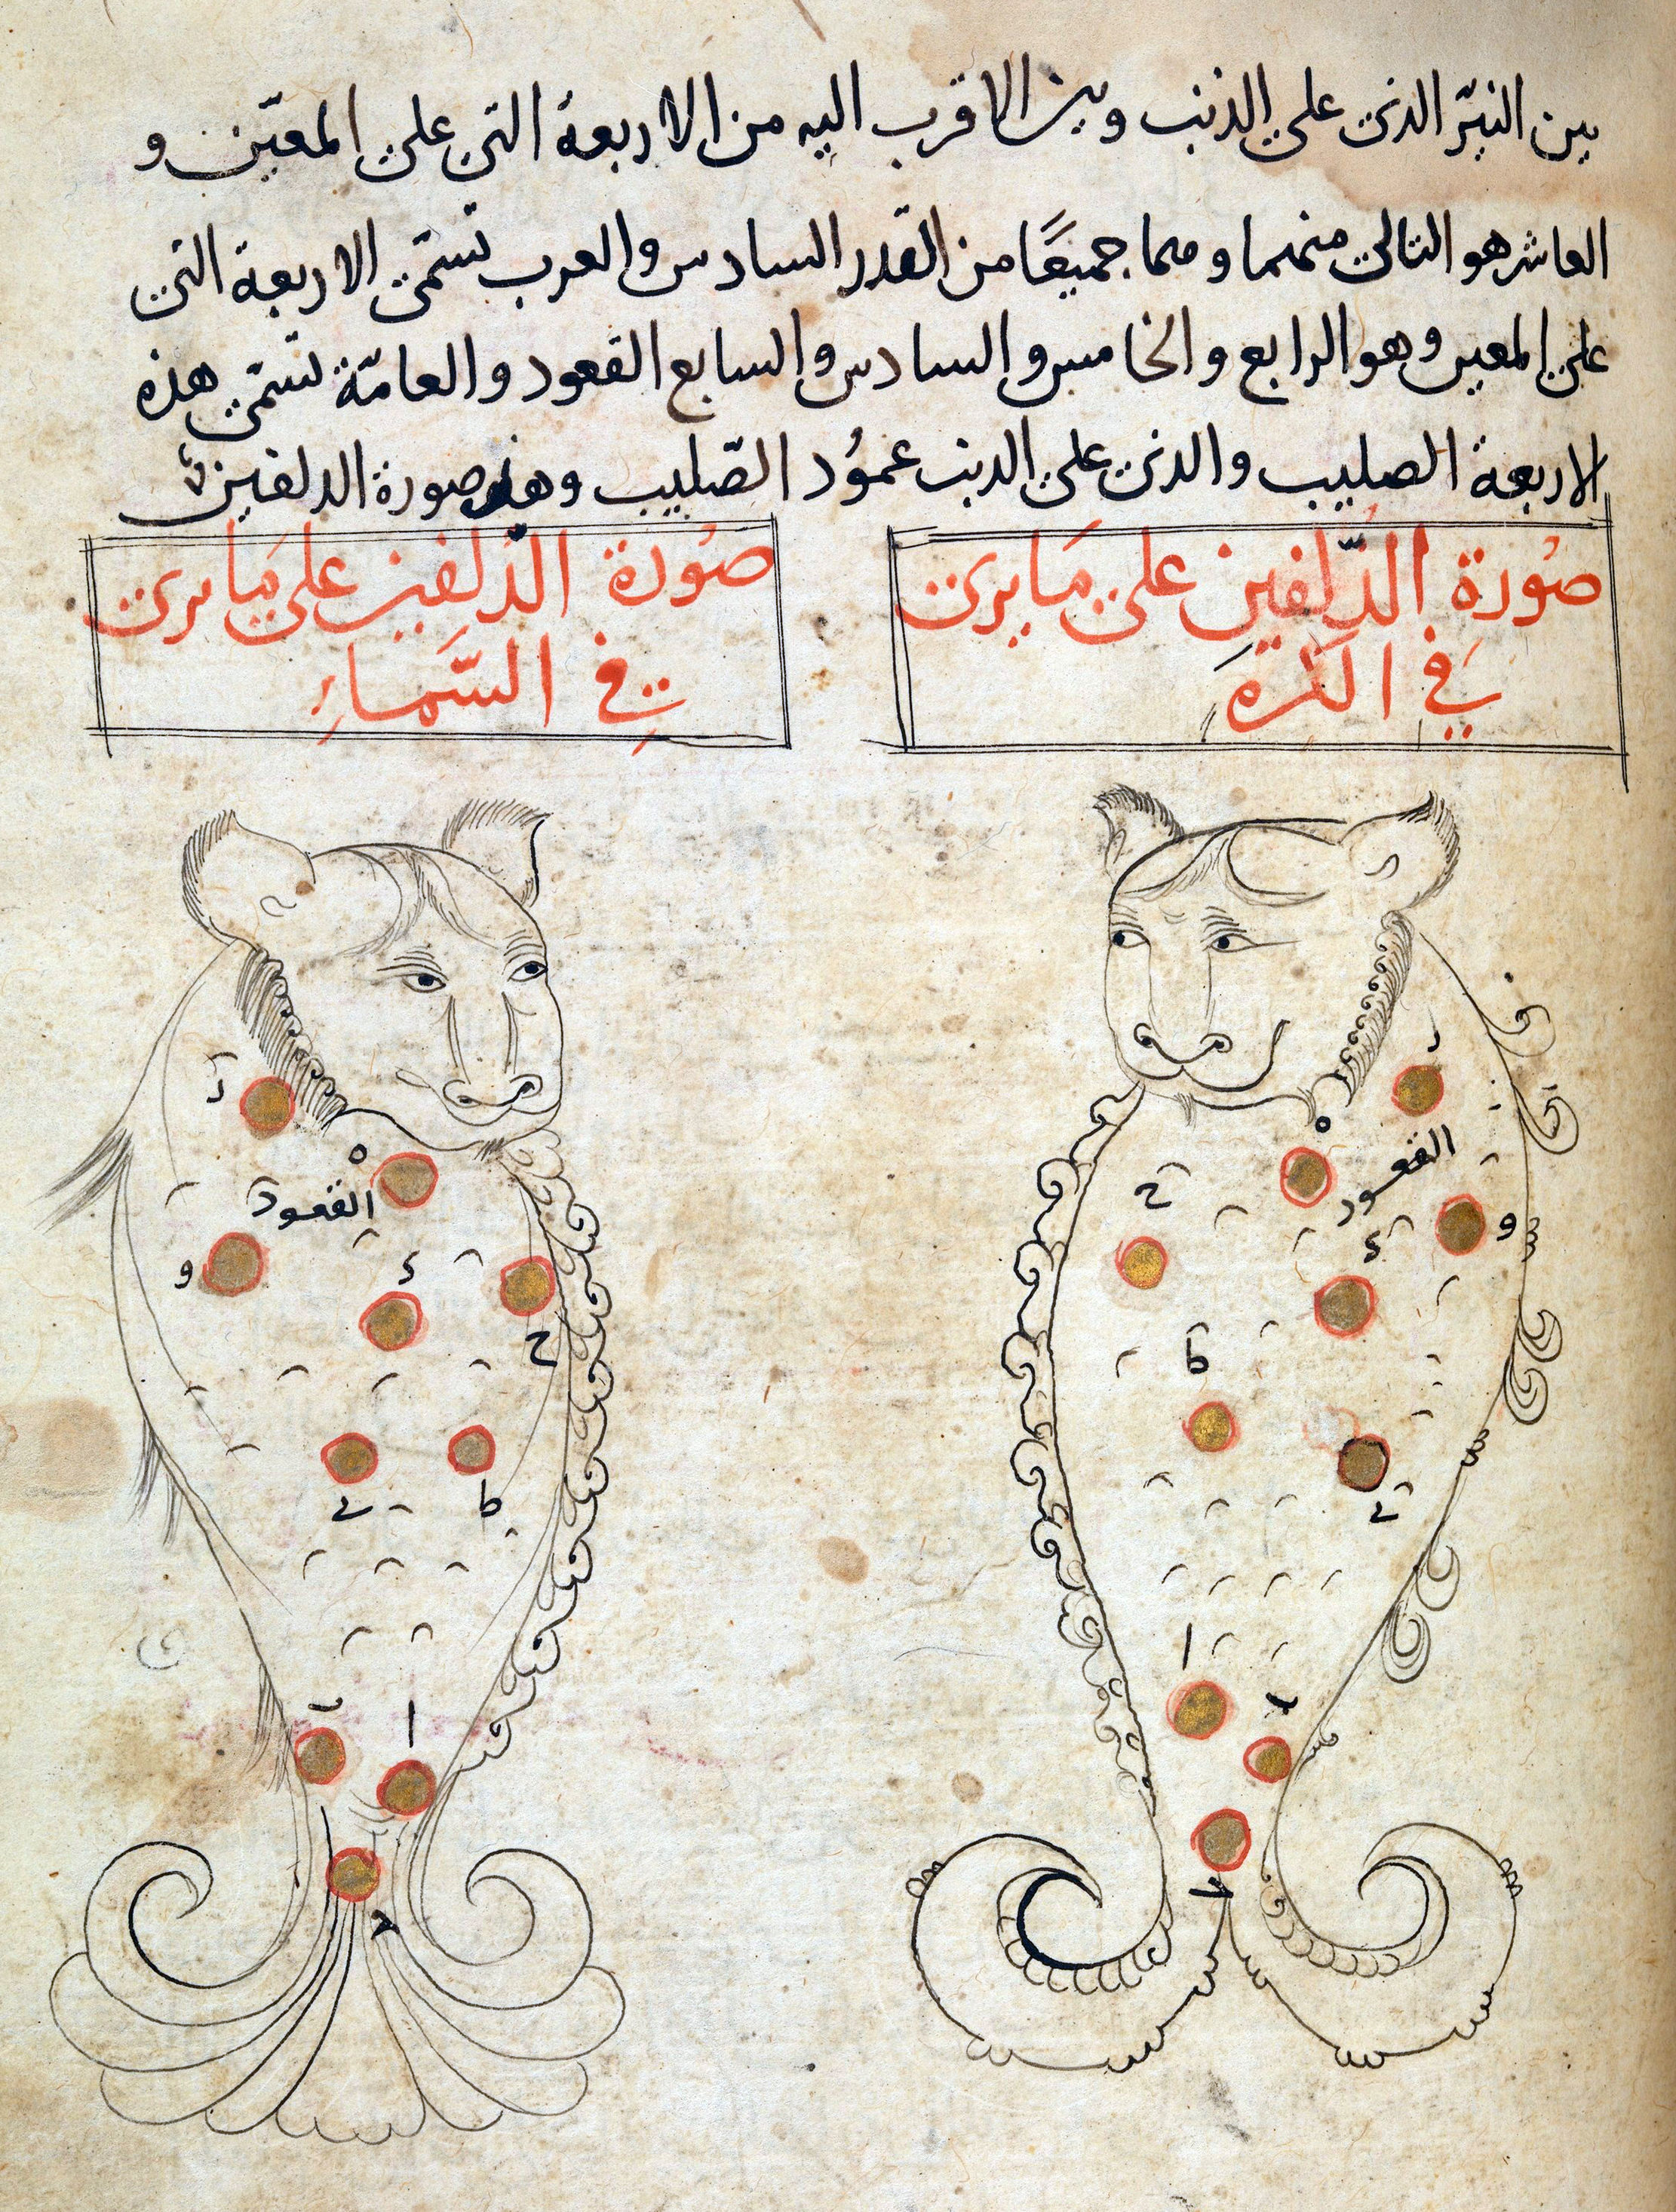 بين النيّر الذى على الذنب وبين الاقرب اليه من الاربعة التى على المعيّن و
العاشر هو التالى منهما وهما جميعًا من القدر السادس والعرب تسمّى الاربعة التى
على المعين وهو الرابع والخامس والسادس والسابع القعود والعامّة تسمّى هذه
الاربعة الصليب والذى على الذنب عمُود الصّليب وهذه صورة الدلفين
صُورة الدُّلفين على مَا يرى
فِي الكَره
صُورة الدُلفين على مَا يرى
فِي السَّماءِ
ز
ه
القعود
و
ح
د
ط
ى
ا
ب
ج
ز
ه
القعود
و
د
ح
ى
ط
ب
ا
ج